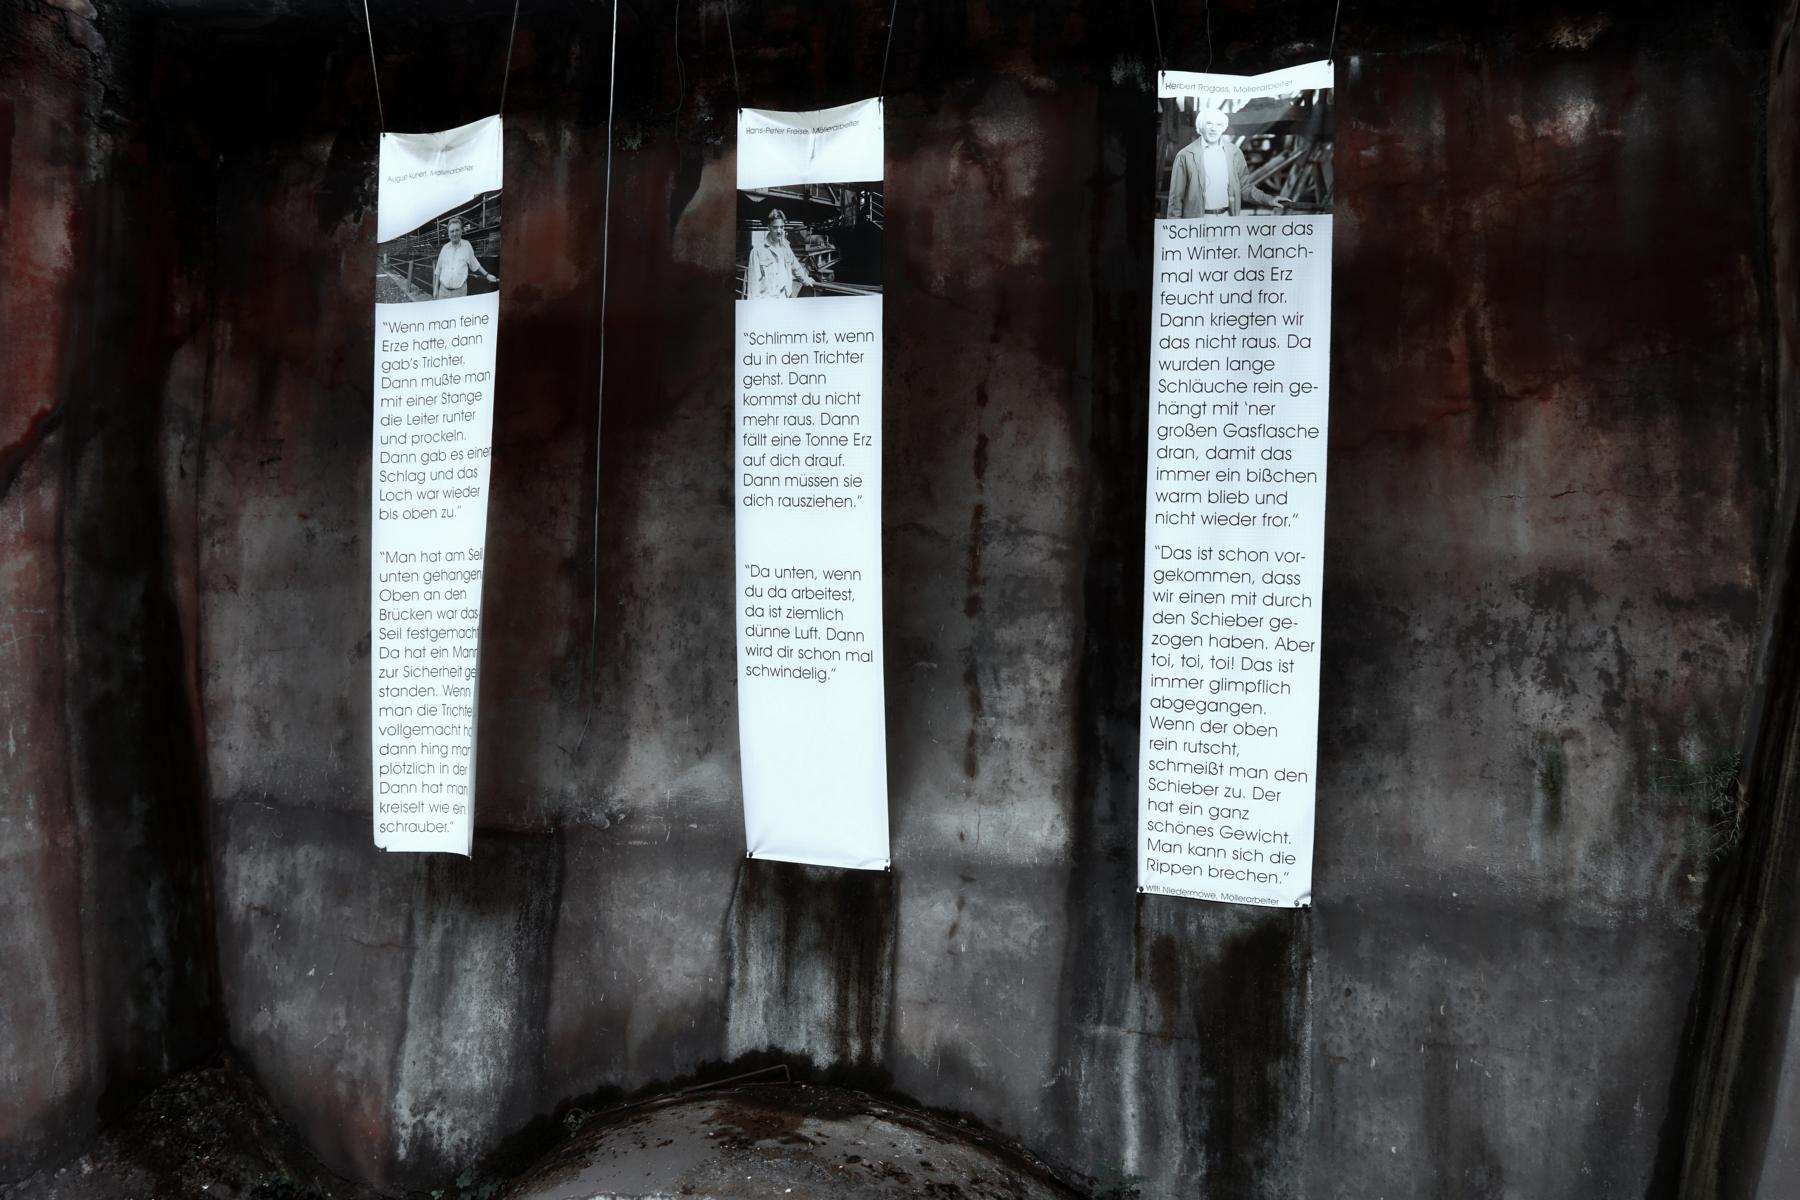 August Kunert, Möllerarbeiter
"Wenn man feine
Erze hatte, dann
gab's Trichter.
Dann mußte man
mit einer Stange
die Leiter runter
und prockeln.
Dann gab es einen
Schlag und das
Loch war wieder
bis oben zu."
"Man hat am Seil
unten gehangen
Oben an den
Brücken war das
Seil festgemacht
Da hat ein Mann
zur Sicherheit ge
standen. Wenn
man die Trichte
vollgemacht ha
dann hing man
plötzlich in der
Dann hat man
kreiselt wie ein
schrauber."
Hans-Peter Freise, Möllerarbeiter
"Schlimm ist, wenn
du in den Trichter
gehst. Dann
kommst du nicht
mehr raus. Dann
fällt eine Tonne Erz
auf dich drauf.
Dann müssen sie
dich rausziehen."
"Da unten, wenn
du da arbeitest,
da ist ziemlich
dünne Luft. Dann
wird dir schon mal
schwindelig."
Herbert Rogass, Möllerarbeiter
"Schlimm war das
im Winter. Manch-
mal war das Erz
feucht und fror.
Dann kriegten wir
das nicht raus. Da
wurden lange
Schläuche rein ge-
hängt mit 'ner
großen Gasflasche
dran, damit das
immer ein bißchen
warm blieb und
nicht wieder fror."
"Das ist schon vor-
gekommen, dass
wir einen mit durch
den Schieber ge-
zogen haben. Aber
toi, toi, toi! Das ist
immer glimpflich
abgegangen.
Wenn der oben
rein rutscht,
schmeißt man den
Schieber zu. Der
hat ein ganz
schönes Gewicht.
Man kann sich die
Rippen brechen."
Willi Niedermowe, Möllerarbeiter